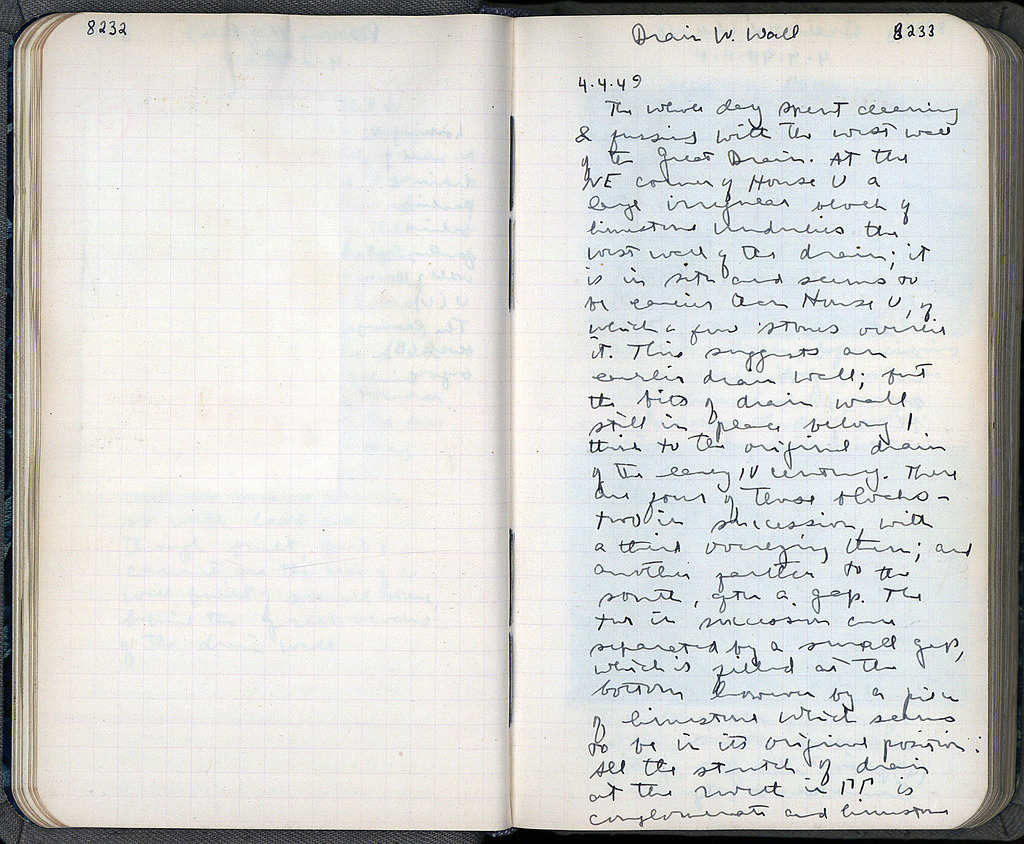 8232
Drain W. Wall 8233
4.4.49
The whole day spent cleaning
& fussing with the west wall
of the Great Drain. At the
NE corner of House U a
large irregular block of
limestone underlies the
west wall of the drain; it
is in situ and seems to
be earlier than House U, of
which a few stones overlie
it. This suggests an
earlier drain wall; but
the bits of drain wall
still in place belong I
think to the original drain
of the early IV century. There
are four of these blocks –
two in succession, with
a third overlying them; and
another farther to the
south, after a gap. The
two in succession are
separated by a small gap,
which is filled at the
bottom however by a piece
of limestone which seems
to be in its original position.
All the stretch of drain
at the north in ΠΓ is
conglomerate and limestone